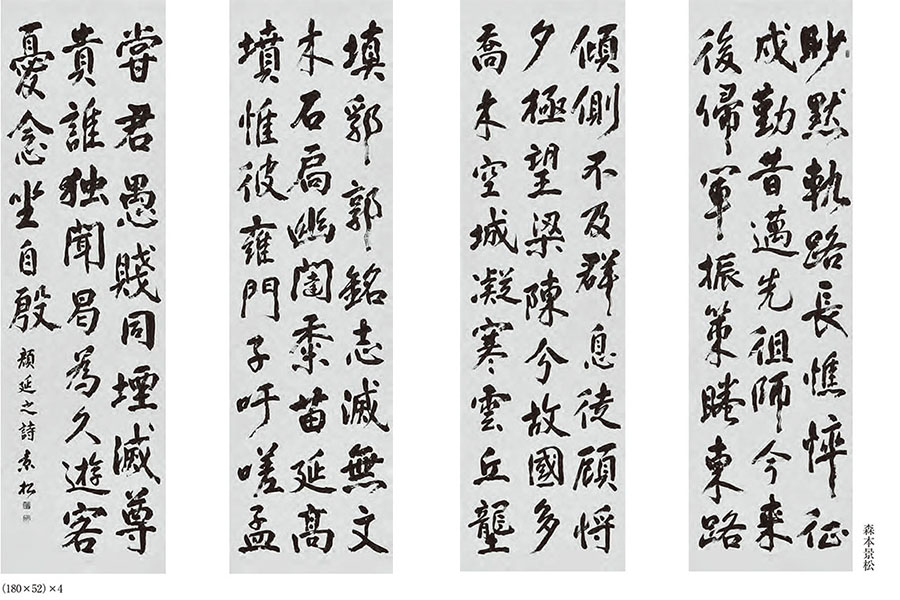 眇默軌路長憔悴征
戍勤昔邁先徂師今来
後帰軍振策睠東路
傾側不及群息徒顧将
夕極望梁陳分故國多
喬木空城凝寒雲丘壟
填郛郭銘志滅無文
木石扃幽闥黍苗延高
墳惟彼雍門子吁嗟孟
嘗君愚賤同堙滅尊
貴誰独聞曷為久遊客
憂念坐自殷
顔延之詩 景松
森本景松
(180×52)×4